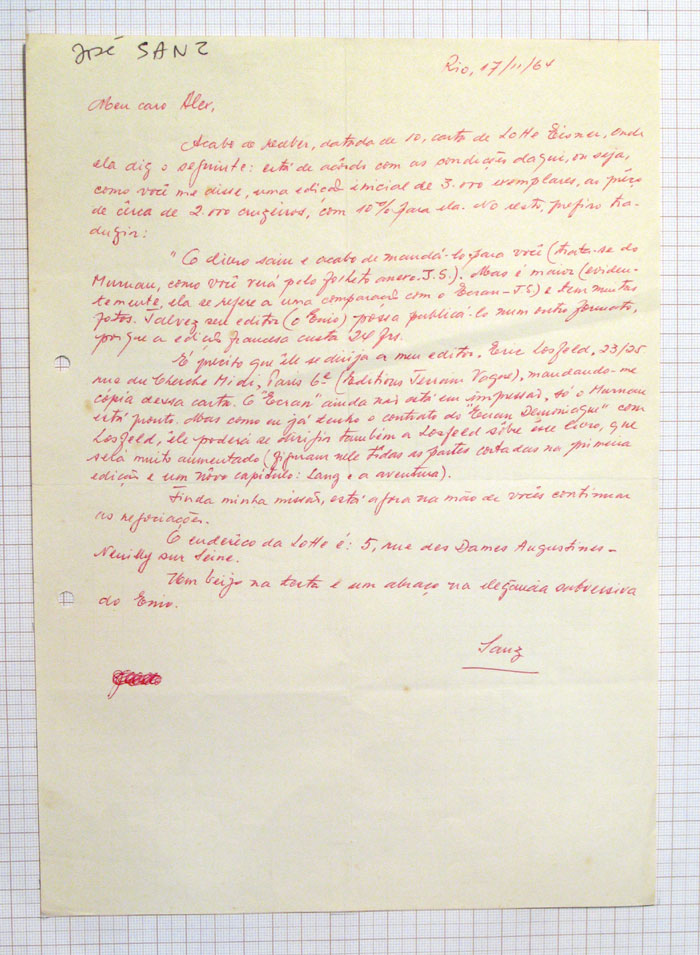 José SANZ
Rio, 17/11/64
Meu caro Alex,
Acabo de receber, datada de 10, carta de Lotte Eisner, onde
ela diz o seguinte: está de acôrdo com as condições daqui, ou seja,
como você me disse, uma edição inicial de 3.000 exemplares, ao prêço
de cêrca de 2.000 cruzeiros, com 10% para ela. No resto, prefiro tra-
duzir:
"O livro saiu e acabo de mandá-lo para você (trata-se do
Murnau, como você verá pelo folheto anexo. J.S.). Mas é maior (eviden-
temente, ela se refere a uma comparação com o Ecran-JS) e tem muitas
fotos. Talvez seu editor (o Enio) possa publicá-lo num outro formato,
porque a edição francesa custa 24 frs.
É preciso que êle se dirija a meu editor, Eric Losfeld, 23/25
rue du Cherche Midi, Paris 6e (Editions Terrain Vague), mandando-me
cópia dessa carta. O "Ecran" ainda não está em impressão, só o Murnau
está pronto. Mas como eu já tenho o contrato do "Ecran Demoniaque" com
Losfeld, êle poderá se dirigir também a Losfeld sôbre êsse livro, que
será muito aumentado (figuram nele tôdas as partes cortadas na primeira
edição e um nôvo capítulo: Lang e a aventura).
Finda minha missão, está agora na mão de vocês continuar
as negociações.
O enderêço da Lotte é: 5, rue des Dames Augustines-
Neuilly sur Seine.
Um beijo na testa e um abraço na elegância subversiva
do Enio.
Sanz